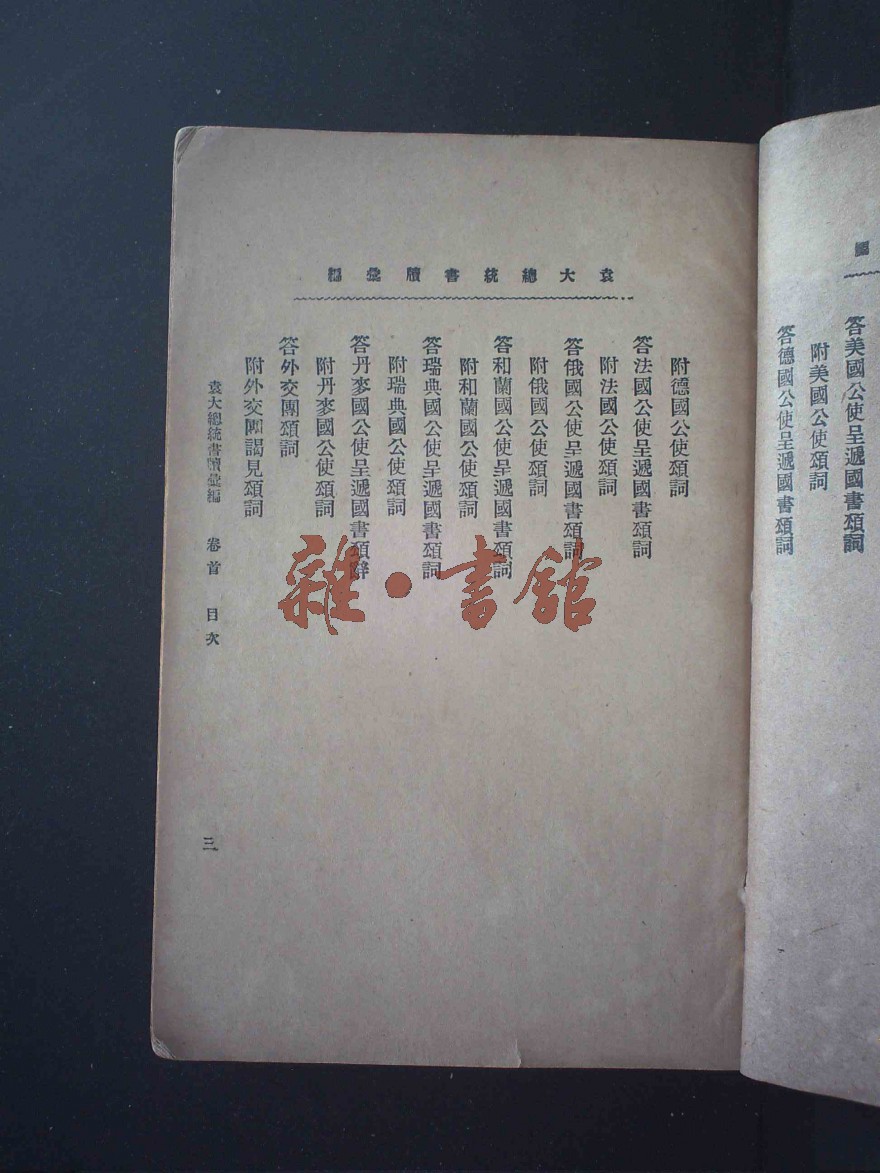 答美國公使呈遞國書頌詞
附美國公使頌詞
答德國公使呈遞國書頌詞
袁大總統書牘彙編
附德國公使頌詞
答法國公使呈遞國書頌詞
附法國公使頌詞
答俄國公使呈遞國書頌詞
附俄國公使頌詞
答和蘭國公使呈遞國書頌詞
附和蘭國公使頌詞
答瑞典國公使呈遞國書頌詞
附瑞典國公使頌詞
答丹麥國公使呈遞國書頌辭
附丹麥國公使頌詞
答外交團頌詞
附外交團謁見頌詞
袁大總統書牘彙編 卷首 目次
三
雜·書館